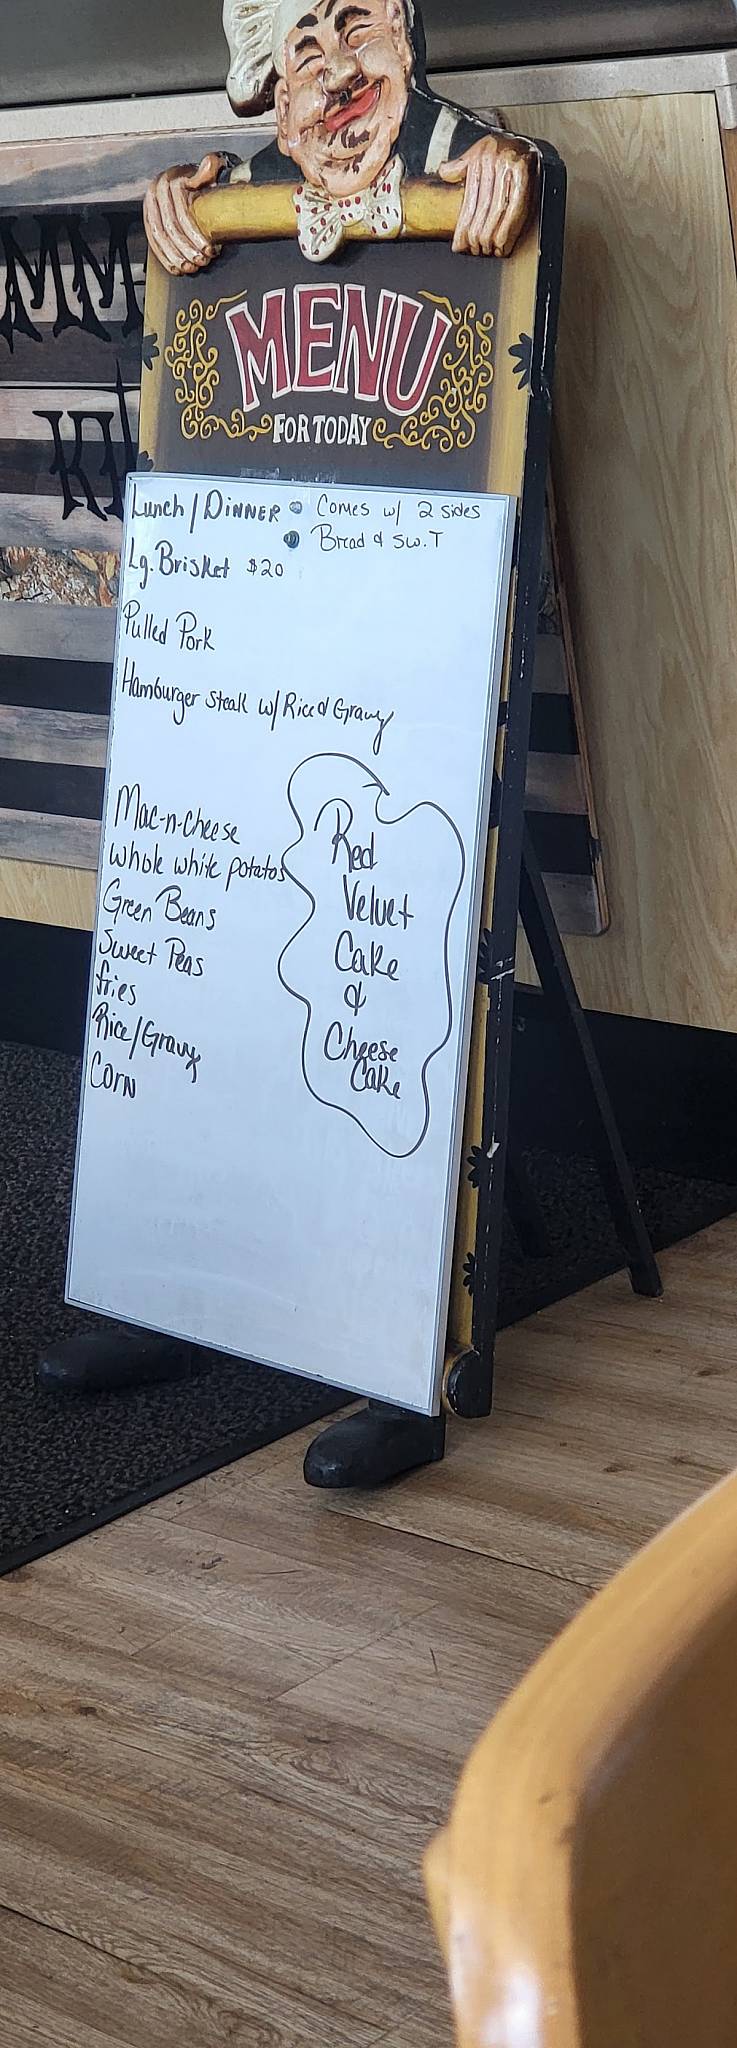 MENU
FOR TODAY
Lunch / DINNER Comes w/ 2 sides
Bread & Sw.T
Lg. Brisket $20
Pulled Pork
Hamburger Steak w/ Rice & Gravy
Mac-n-cheese
whole white potatos
Green Beans
Sweet Peas
fries
Rice/Gravy
CORN
Red
Velvet
Cake
&
Cheese
Cake